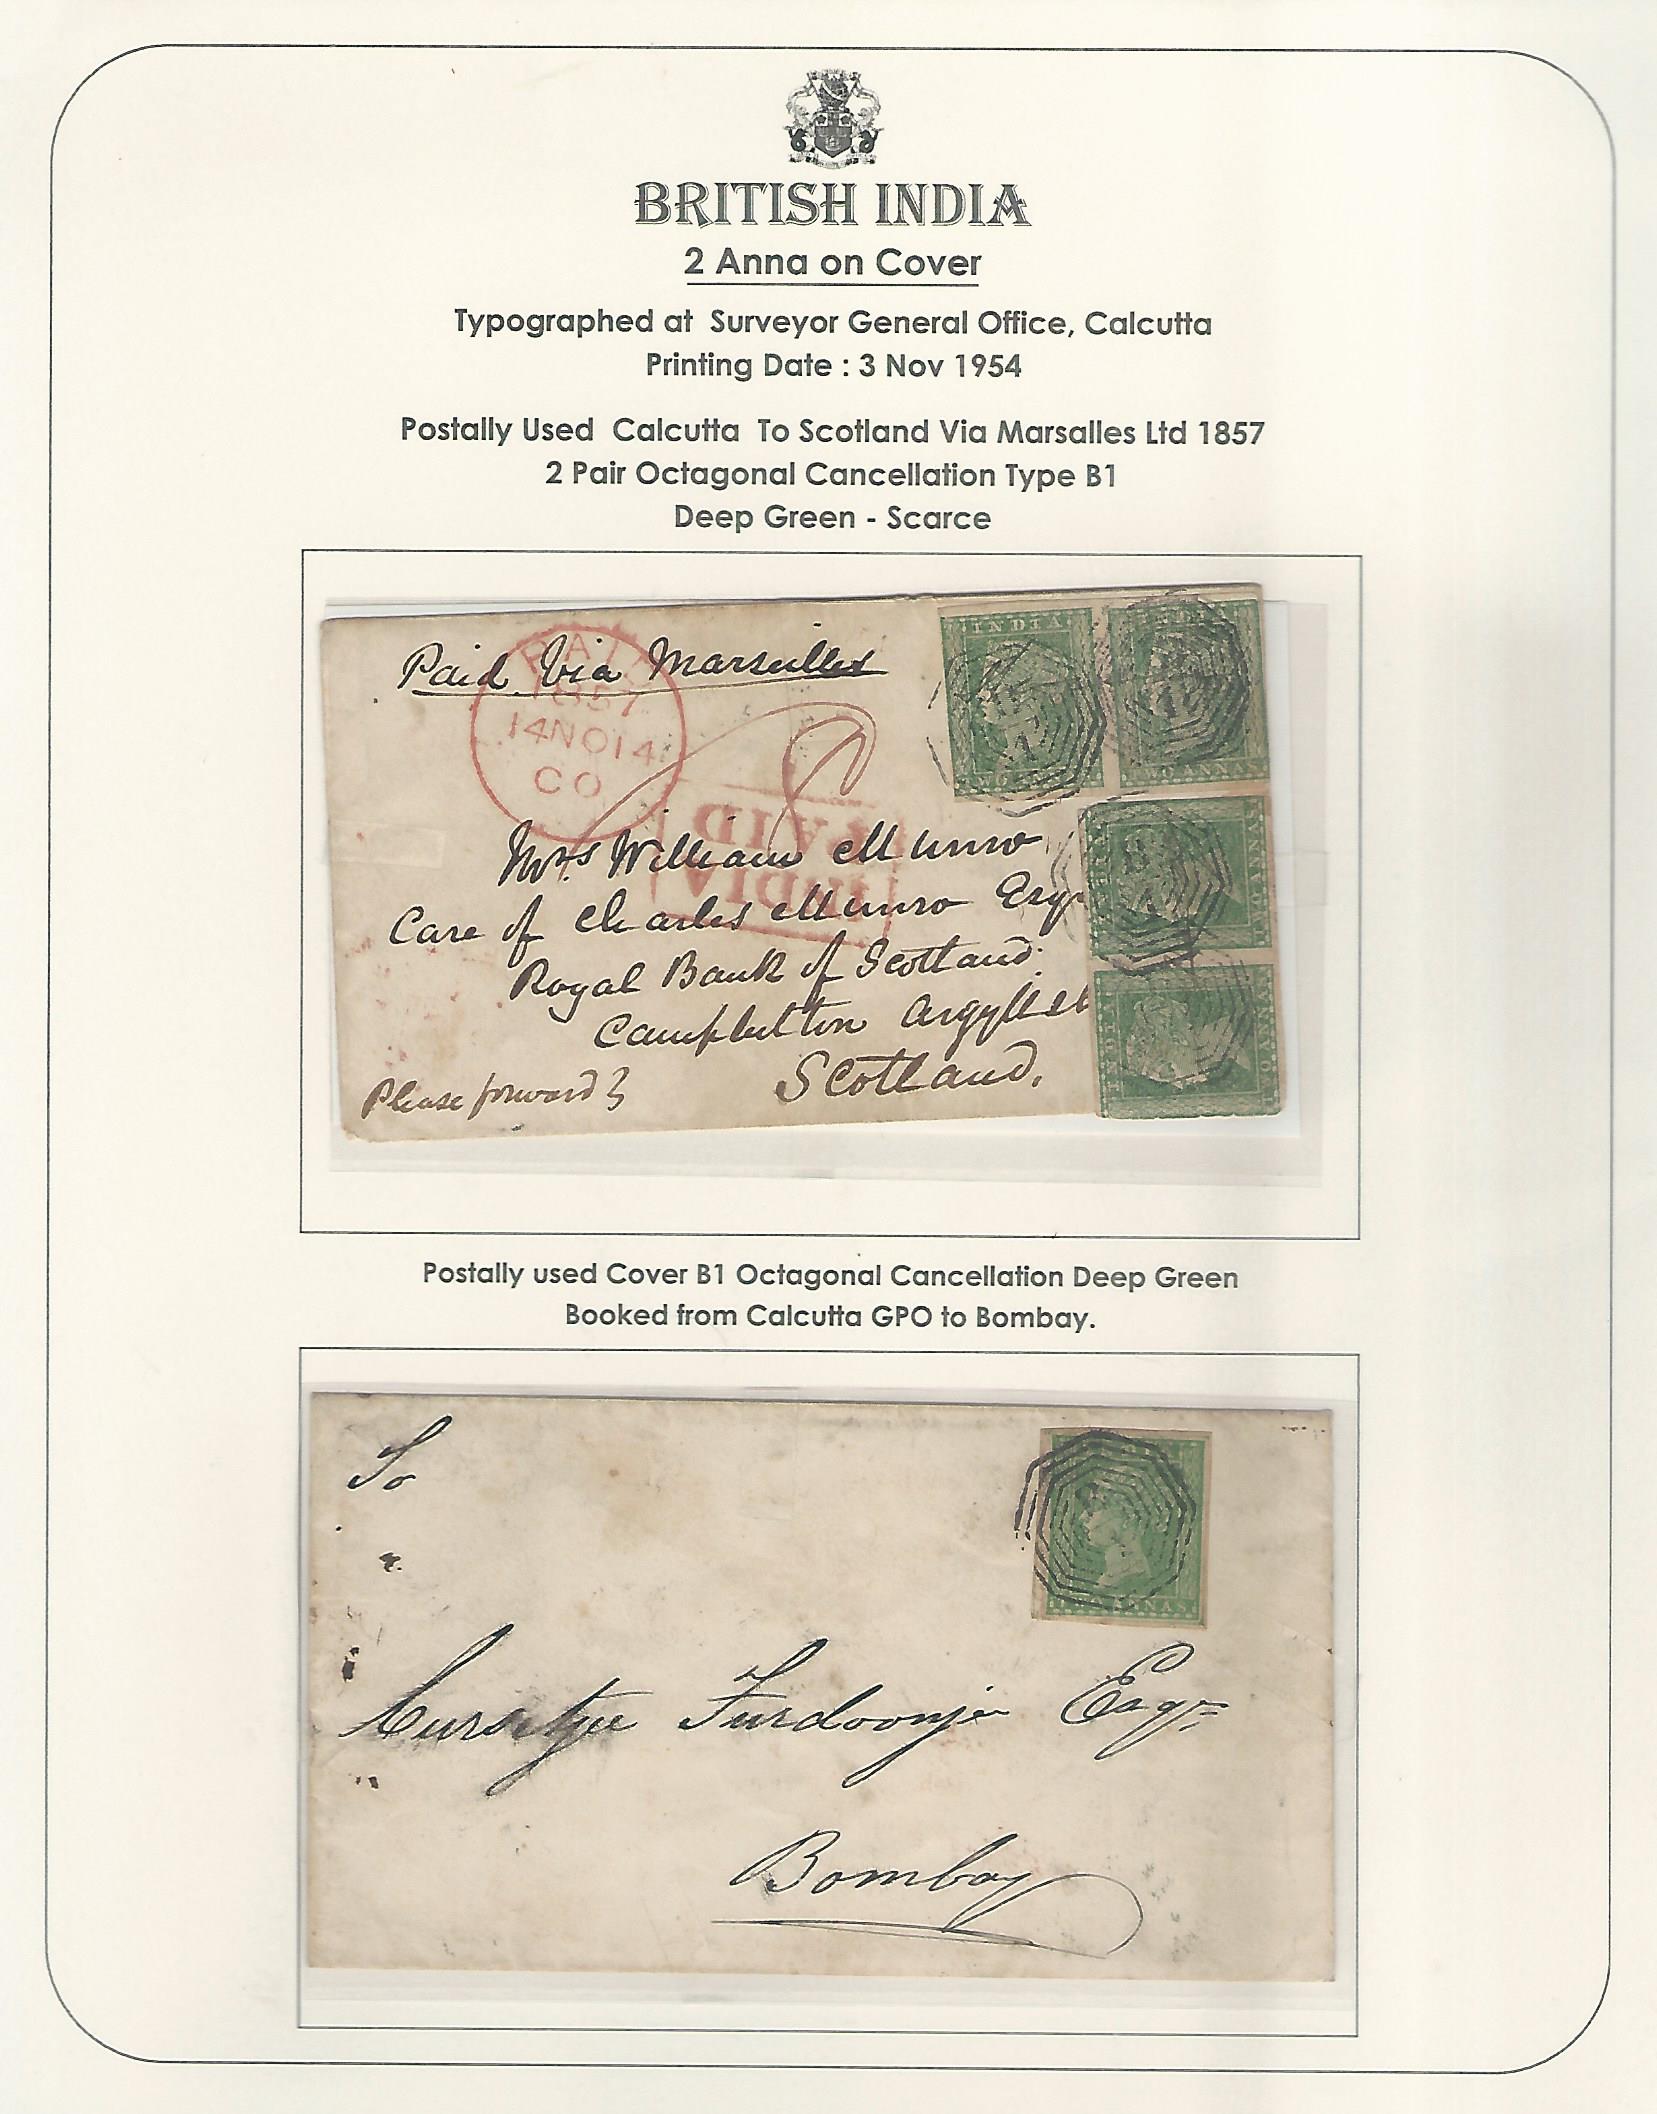 BRITISH INDIA
2 Anna on Cover
Typographed at Surveyor General Office, Calcutta
Printing Date : 3 Nov 1954
Postally Used Calcutta To Scotland Via Marsalles Ltd 1857
2 Pair Octagonal Cancellation Type B1
Deep Green - Scarce
Paid Via Marseilles
PAID
1857
14NO14
CO
INDIA
TWO ANNAS
INDIA
TWO ANNAS
INDIA PAID
Mrs William Munro
Care of Charles Munro Esqr
Royal Bank of Scotland
Campbelton
Scotland.
Please forward
INDIA
TWO ANNAS
INDIA
TWO ANNAS
Postally used Cover B1 Octagonal Cancellation Deep Green
Booked from Calcutta GPO to Bombay.
To
TWO ANNAS
Cursetjee Furdoonjee Esqre
Bombay